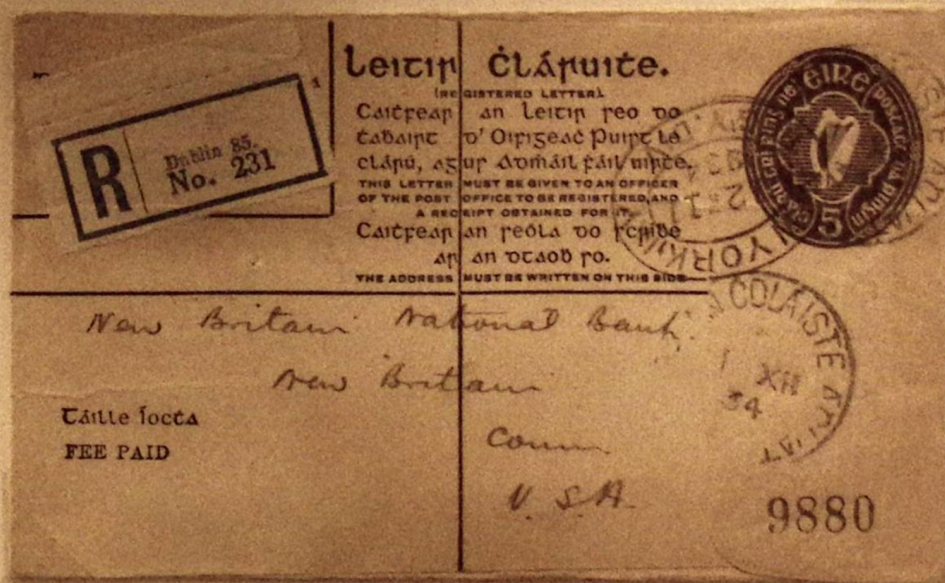 R
Dublin 85.
No. 231
Leitir Ċláruiṫe.
(REGISTERED LETTER).
Caiṫfear an leitir seo do
ṫaḃairt d' Oifigeaċ Puist le
clárú, agus admáil fáil uirṫe.
THIS LETTER MUST BE GIVEN TO AN OFFICER
OF THE POST OFFICE TO BE REGISTERED, AND
A RECEIPT OBTAINED FOR IT.
Caiṫfear an seóla do scríbe
ar an dtaoḃ so.
THE ADDRESS MUST BE WRITTEN ON THIS SIDE
éire
postage
5
YORK
COLÁISTE
1 XII
34
New Britain National Bank
New Britain
Conn
U.S.A.
Táille íocta
FEE PAID
9880